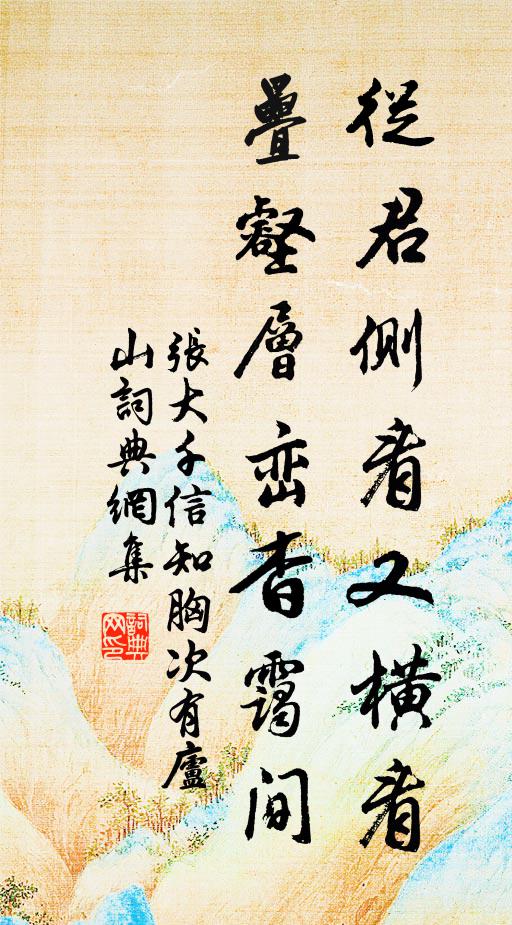 從君側看又橫看
疊壑層巒杳靄间
張大千信知胸次有廬
山詞典網集
詞典
网印